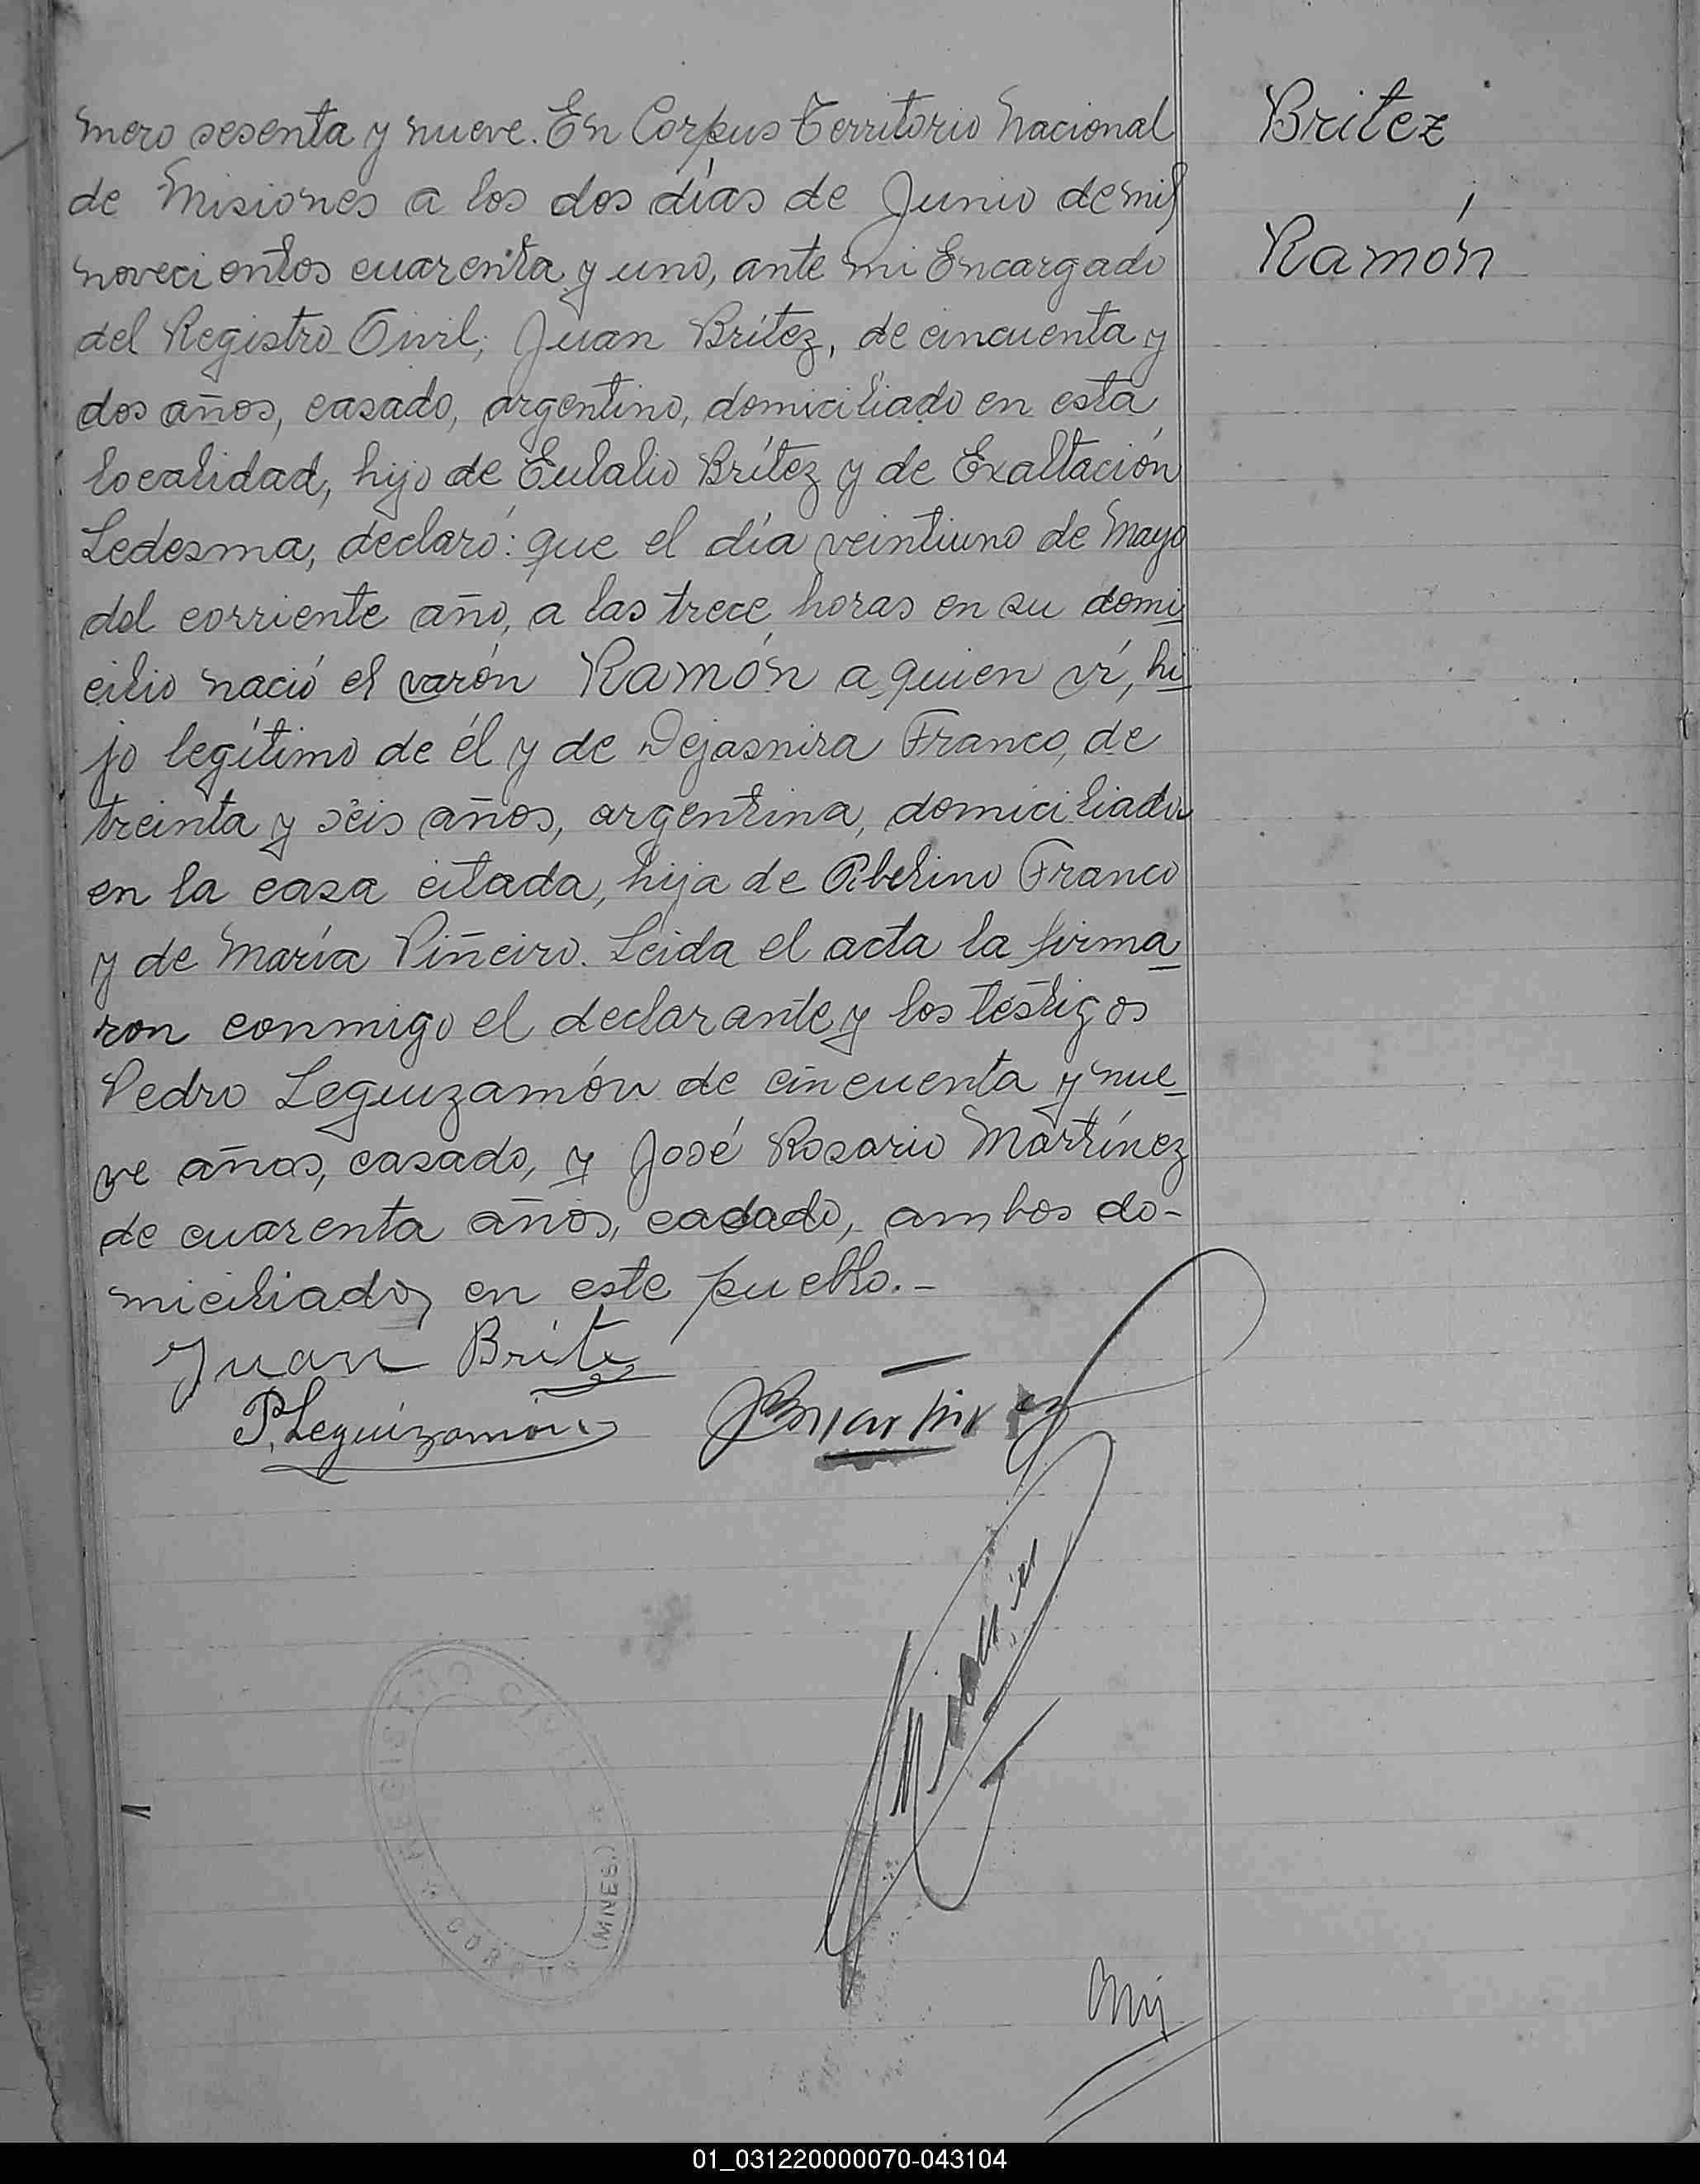 mero sesenta y nueve. En Corpus Territorio Nacional
de Misiones a los dos días de Junio de mil
novecientos cuarenta y uno, ante mi Encargado
del Registro Civil; Juan Brítez, de cincuenta y
dos años, casado, argentino, domiciliado en esta
localidad, hijo de Eulalio Brítez y de Exaltación
Ledesma, declaró: que el día veintiuno de Mayo
del corriente año, a las trece horas en su domi
cilio nació el varón Ramón a quien ví, hi
jo legítimo de él y de Dejasnira Franco, de
treinta y seis años, argentina, domiciliada
en la casa citada, hija de Franco
y de María Piñeiro. Leida el acta la firma
ron conmigo el declarante y los testigos
Pedro Leguizamón de cincuenta y nue
ve años, casado, y José Rosario Martínez
de cuarenta años, casado, ambos do-
miciliados en este pueblo.-
Britez
Ramón
Juan Brite
P. Leguizamón
REGISTRO CIVIL * CORPUS (MNES.) *
01_031220000070-043104